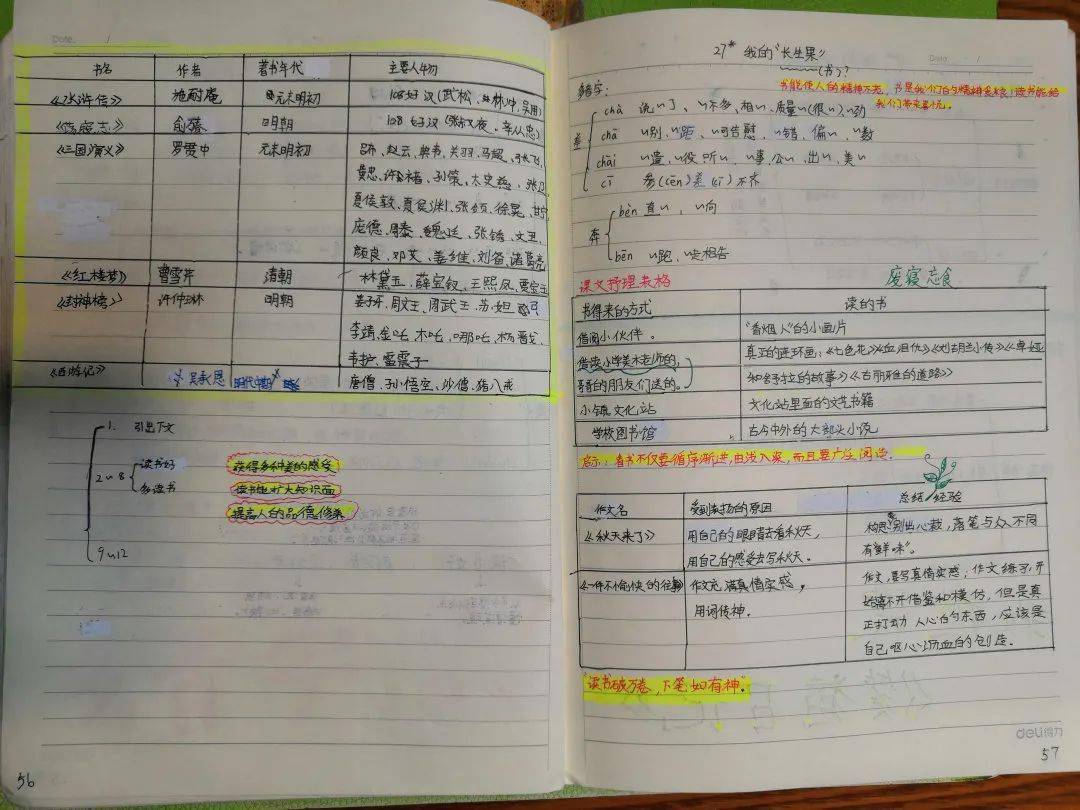 Date. /
书名 作者 著书年代 主要人物
《水浒传》 施耐庵 元末明初 108好汉(武松、林冲、吴用)
《荡寇志》 俞万春 明朝 108好汉(张叔夜、辛从忠)
《三国演义》 罗贯中 元末明初 吕布、赵云、典韦、关羽、马超、张飞、
黄忠、许褚、孙策、太史慈、张辽
夏侯敦、夏侯渊、张颌、徐晃、甘宁
庞德、周泰、魏延、张锈、文丑、
颜良、邓艾、姜维、刘备、诸葛亮
《红楼梦》 曹雪芹 清朝 林黛玉、薛宝钗、王熙凤、贾宝玉
《封神榜》 许仲琳 明朝 姜子牙、周文王、周武王、苏妲己
李靖、金吒、木吒、哪吒、杨戬
韦护、雷震子
《西游记》 吴承恩 明代中期 唐僧、孙悟空、沙僧、猪八戒
1. 引出下文
2~8 读书好
多读书
获得多种类的感受
读书能扩大知识面
提高人的品德修养
9~12
56
27* 我的"长生果"
(书)?
Date. /
书能使人的精神不老,书是我们的精神食粮,读书能给
我们带来喜悦。
多音字:
差
chà 说~了、~不多、相~、质量~(很)、~劲
chā ~别、~距、~可告慰、~错、偏~、~数
chāi ~遣、~役、听~、~事、公~、出~、美~
cī 参(cēn)差(cī)不齐
奔
bèn 直~、~向
bēn ~跑、~走相告
课文梳理表格
废寝忘食
书得来的方式 读的书
借阅小伙伴。 "香烟人"的小画片
借读小学美术老师的, 真正的连环画:《七色花》《血泪仇》《刘胡兰小传》《卓娅
哥哥的朋友们送的。 和舒拉的故事》《古丽雅的道路》
小镇文化站 文化站里面的文艺书籍
学校图书馆 古今中外的大部头小说
启示:看书不仅要循序渐进,由浅入深,而且要广泛阅读。
作文名 受到表扬的原因 总结经验
《秋天来了》 用自己的眼睛去看秋天, 构思别出心裁,落笔与众不同
用自己的感受去写秋天。 有"鲜味"。
《一件不愉快的往事》 作文充满真情实感, 作文,要写真情实感;作文练习,开
用词传神。 始离不开借鉴和模仿,但是真
正打动人心的东西,应该是
自己呕心沥血的创造。
"读书破万卷,下笔如有神。"
deli得力
57